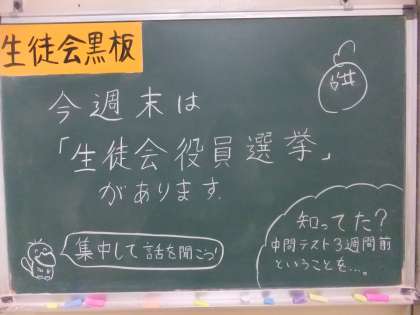 生徒会黒板
今週末は
「生徒会役員選挙」
があります.
知ってた?
中間テスト3週間前
ということを…。
集中して話を聞こう!